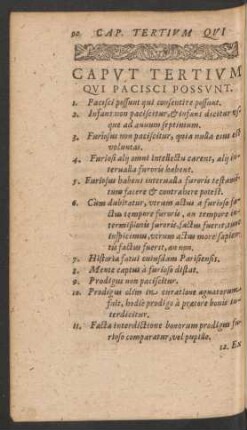 90 CAP. TERTIVM QVI
CAPVT TERTIVM
QVI PACISCI POSSVNT.
1. Pacisci possunt qui consentire possunt.
2. Infans non paciscitur, & infans dicitur us-
que ad annum septimum.
3. Furiosus non paciscitur, quia nulla eius est
voluntas.
4. Furiosi alij omni intellectu carent, alij in-
terualla furoris habent.
5. Furiosus habens interualla furoris testamen-
tum facere & contrahere potest.
6. Cùm dubitatur, vtrum actus à furioso fa-
ctus tempore furoris, an tempore in-
termissionis furoris, factus fuerit,
inspicimus, vtrum actus more sapien-
tis factus fuerit, an non.
7. Historia fatui cuiusdam Parisiensis.
8. Mente captus à furioso distat.
9. Prodigus non paciscitur.
10. Prodigus olim in curatione agnatorum
fuit, hodie prodigo à prætore bonis in-
terdicitur.
11. Facta interdictione bonorum prodigus fu-
rioso comparatur, vel pupillo.
12. Ex